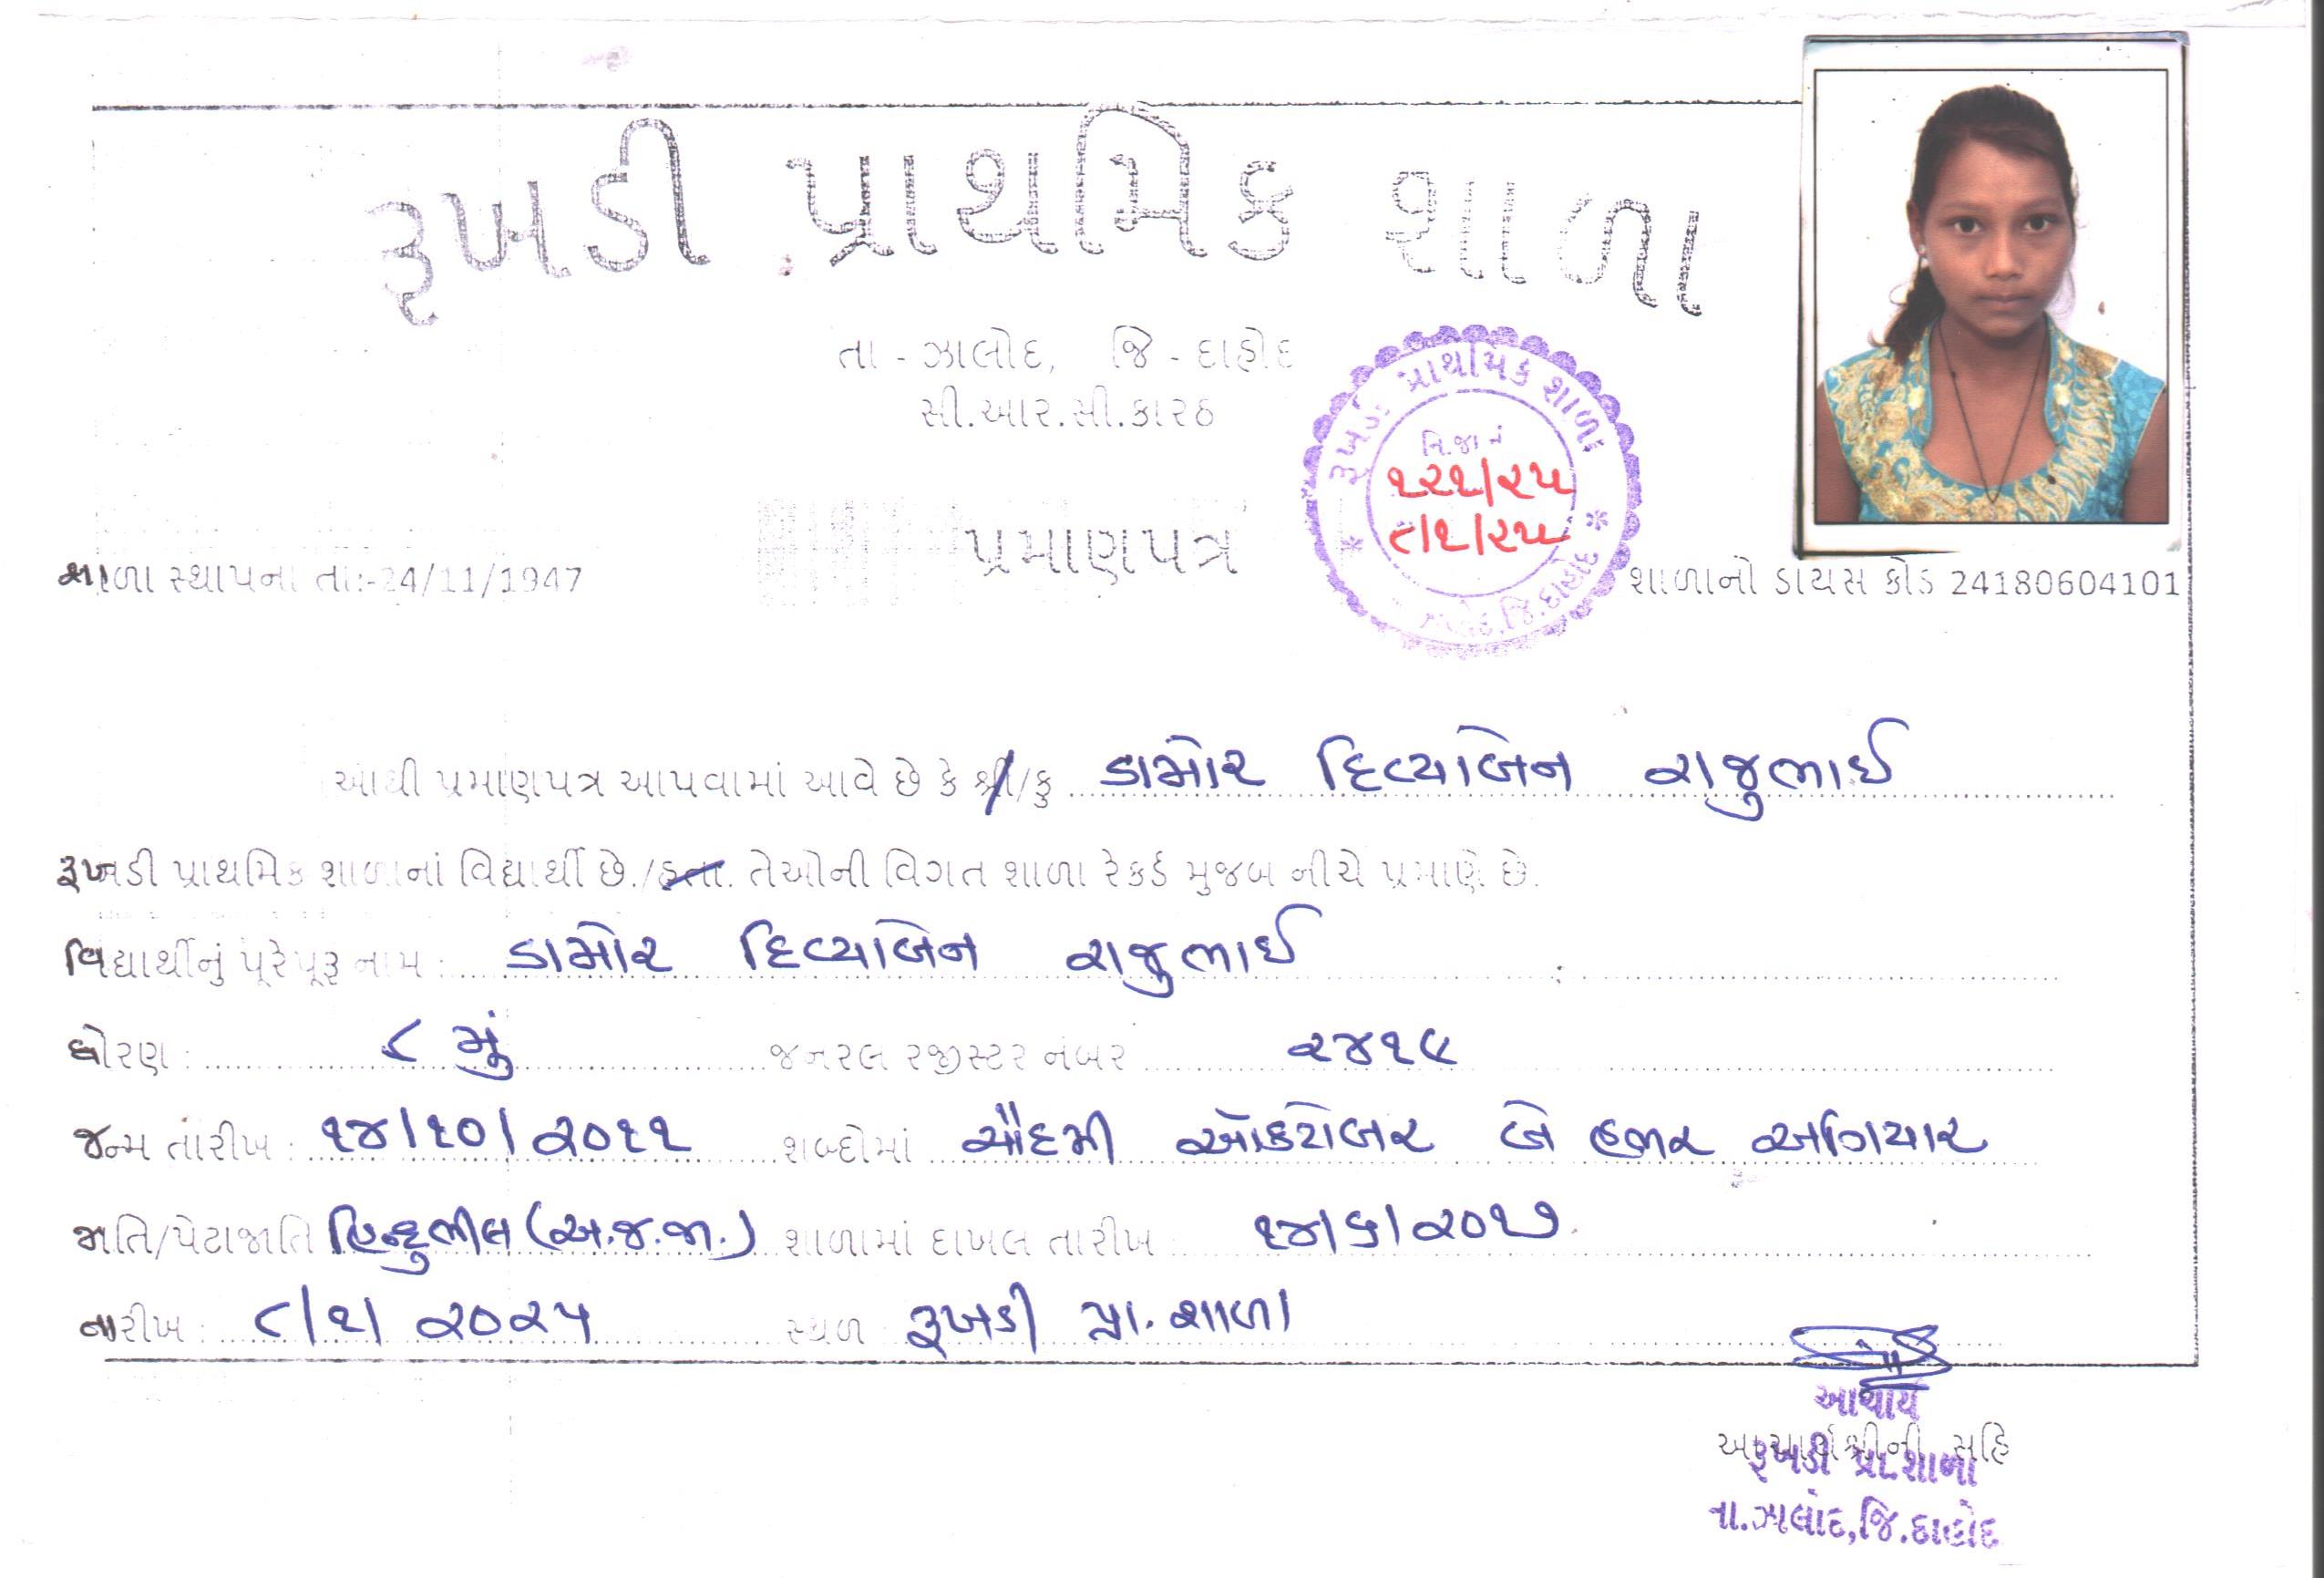 રૂખડી પ્રાથમિક શાળા
તા - ઝાલોદ, જિ - દાહોદ
સી.આર.સી.કારઠ
રૂખડી પ્રાથમિક શાળા
નિ.જા નં
૧૨૧/૨૫
૮/૧/૨૫
પ્રમાણપત્ર
શાળા સ્થાપના તા:-24/11/1947
શાળાનો ડાયસ કોડ 24180604101
આથી પ્રમાણપત્ર આપવામાં આવે છે કે શ્રી/કુ ડામોર દિવ્યાબેન રાજુભાઈ
રૂખડી પ્રાથમિક શાળાનાં વિદ્યાર્થી છે./હતા. તેઓની વિગત શાળા રેકર્ડ મુજબ નીચે પ્રમાણે છે.
વિદ્યાર્થીનું પૂરેપૂરૂ નામ : ડામોર દિવ્યાબેન રાજુભાઈ
ધોરણ : ૮ મું જનરલ રજીસ્ટર નંબર ૨૪૧૯
જન્મ તારીખ : ૧૪/૧૦/૨૦૧૧ શબ્દોમાં ચૌદમી ઓક્ટોબર બે હજાર અગિયાર
જાતિ/પેટાજાતિ હિન્દુભીલ (અ.જ.જા.) શાળામાં દાખલ તારીખ ૧૪/૬/૨૦૧૭
તારીખ : ૮/૧/૨૦૨૫ સ્થળ રૂખડી પ્રા. શાળા
આચાર્ય
આચાર્યશ્રીની સહિ
રૂખડી પ્રા.શાળા
તા.ઝાલોદ,જિ.દાહોદ